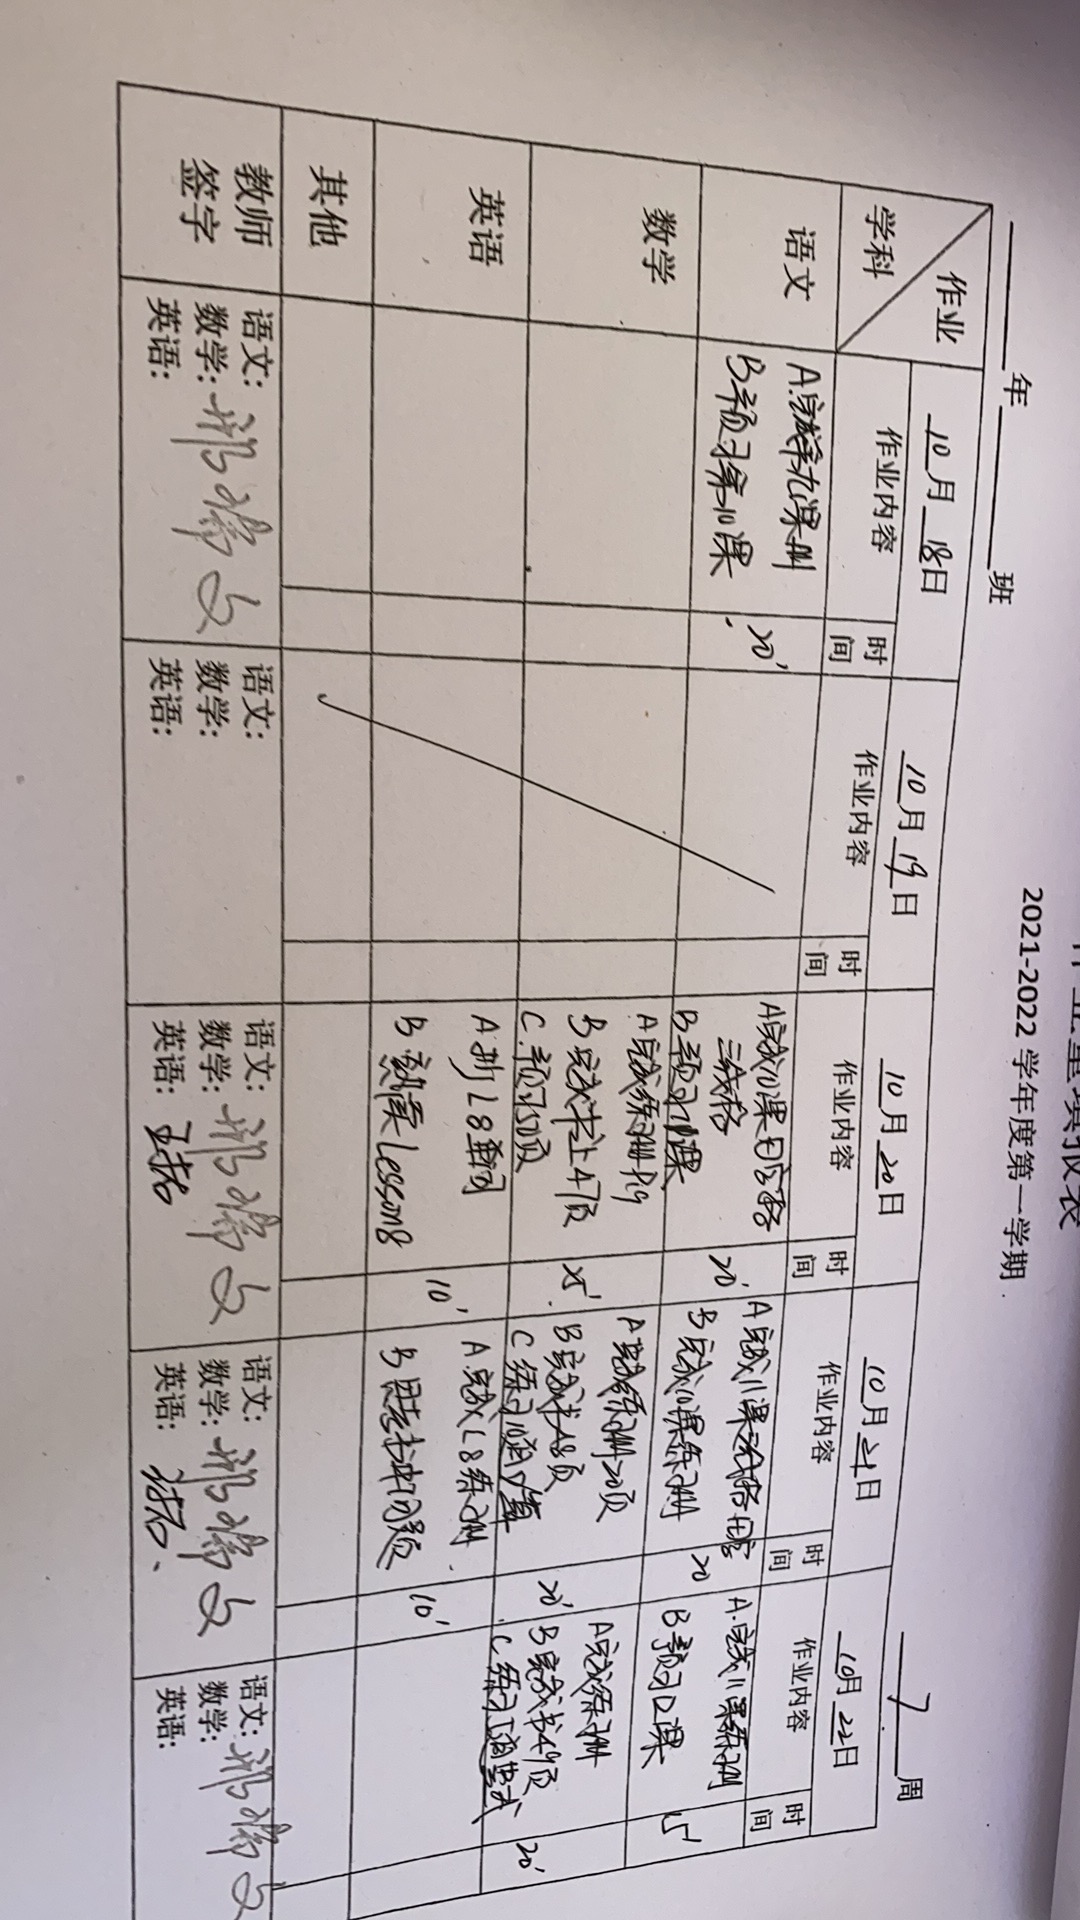 作业量填报表
2021-2022 学年度第一学期
年 班 7 周
作业 学科 10月18日 10月19日 10月20日 10月21日 10月22日
作业内容 时间 作业内容 时间 作业内容 时间 作业内容 时间 作业内容 时间
语文
A.完成第九课册
B预习第10课
20'
A完成10课田字格
三线格
B预习11课
20'
A完成11课三线格田字
B完成10课练习册
20
A.完成11课练习册
B预习12课
15'
数学
A完成练习册P19
B完成书上47页
C.预习50页
25'
A完成练习册20页
B完成书48页
C练习10道口算
20'
A完成练习册
B完成书49页
C练习道竖式
20'
英语
A.抄L8单词
B.熟读Lesson8
10'
A.完成L8练习册
B思考书中问题
10'
其他
教师签字
语文:
数学:
英语:
语文:
数学:
英语:
语文:
数学:
英语:
语文:
数学:
英语:
语文:
数学:
英语: